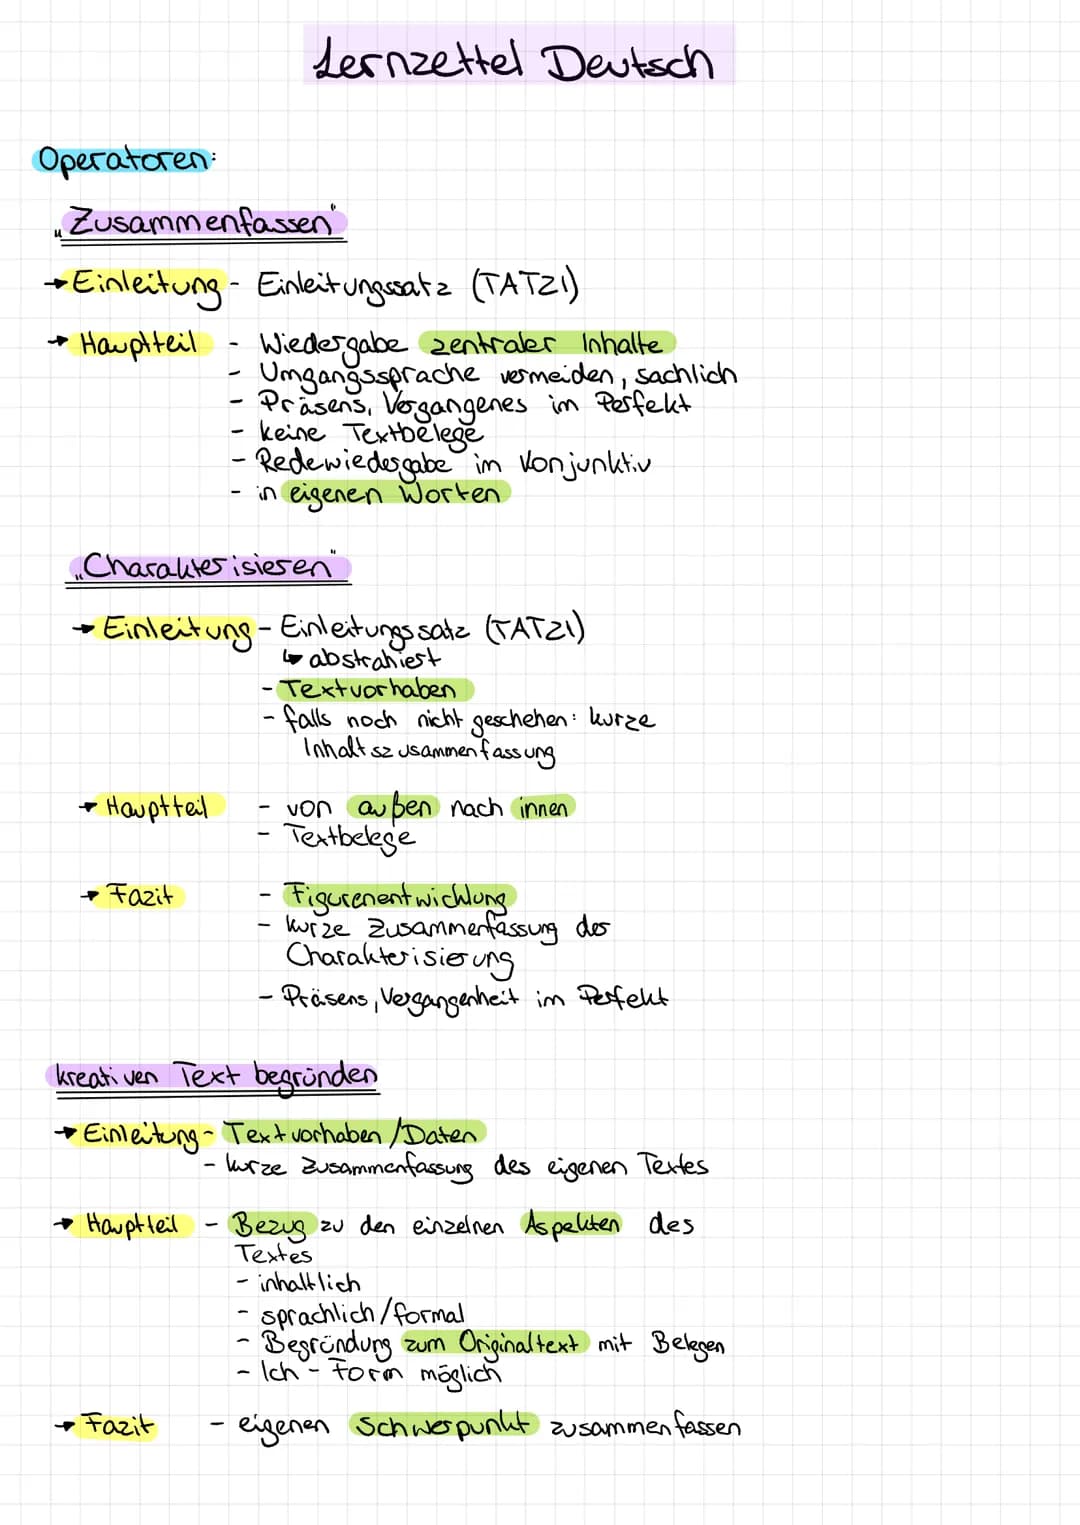 Lernzettel Deutsch
Operatoren:
„Zusammenfassen"
→ Einleitung - Einleitungssatz (TATZI)
→ Hauptteil - Wiedergabe zentraler Inhalte
- Umgangssprache vermeiden, sachlich
- Präsens, Vergangenes im Perfekt
- keine Textbelege
- Redewiedergabe im Konjunktiv
- in eigenen Worten
„Charakterisieren"
→ Einleitung - Einleitungssatz (TATZI)
↳ abstrahiert
- Textvorhaben
- falls noch nicht geschehen: kurze
Inhaltszusammenfassung
→ Hauptteil - von außen nach innen
- Textbelege
→ Fazit - Figurenentwicklung
- kurze Zusammenfassung der
Charakterisierung
- Präsens, Vergangenheit im Perfekt
kreativen Text begründen
→ Einleitung - Textvorhaben / Daten
- kurze Zusammenfassung des eigenen Textes
→ Hauptteil - Bezug zu den einzelnen Aspekten des
Textes
- inhaltlich
- sprachlich / formal
- Begründung zum Originaltext mit Belegen
- Ich - Form möglich
→ Fazit - eigenen Schwerpunkt zusammenfassen